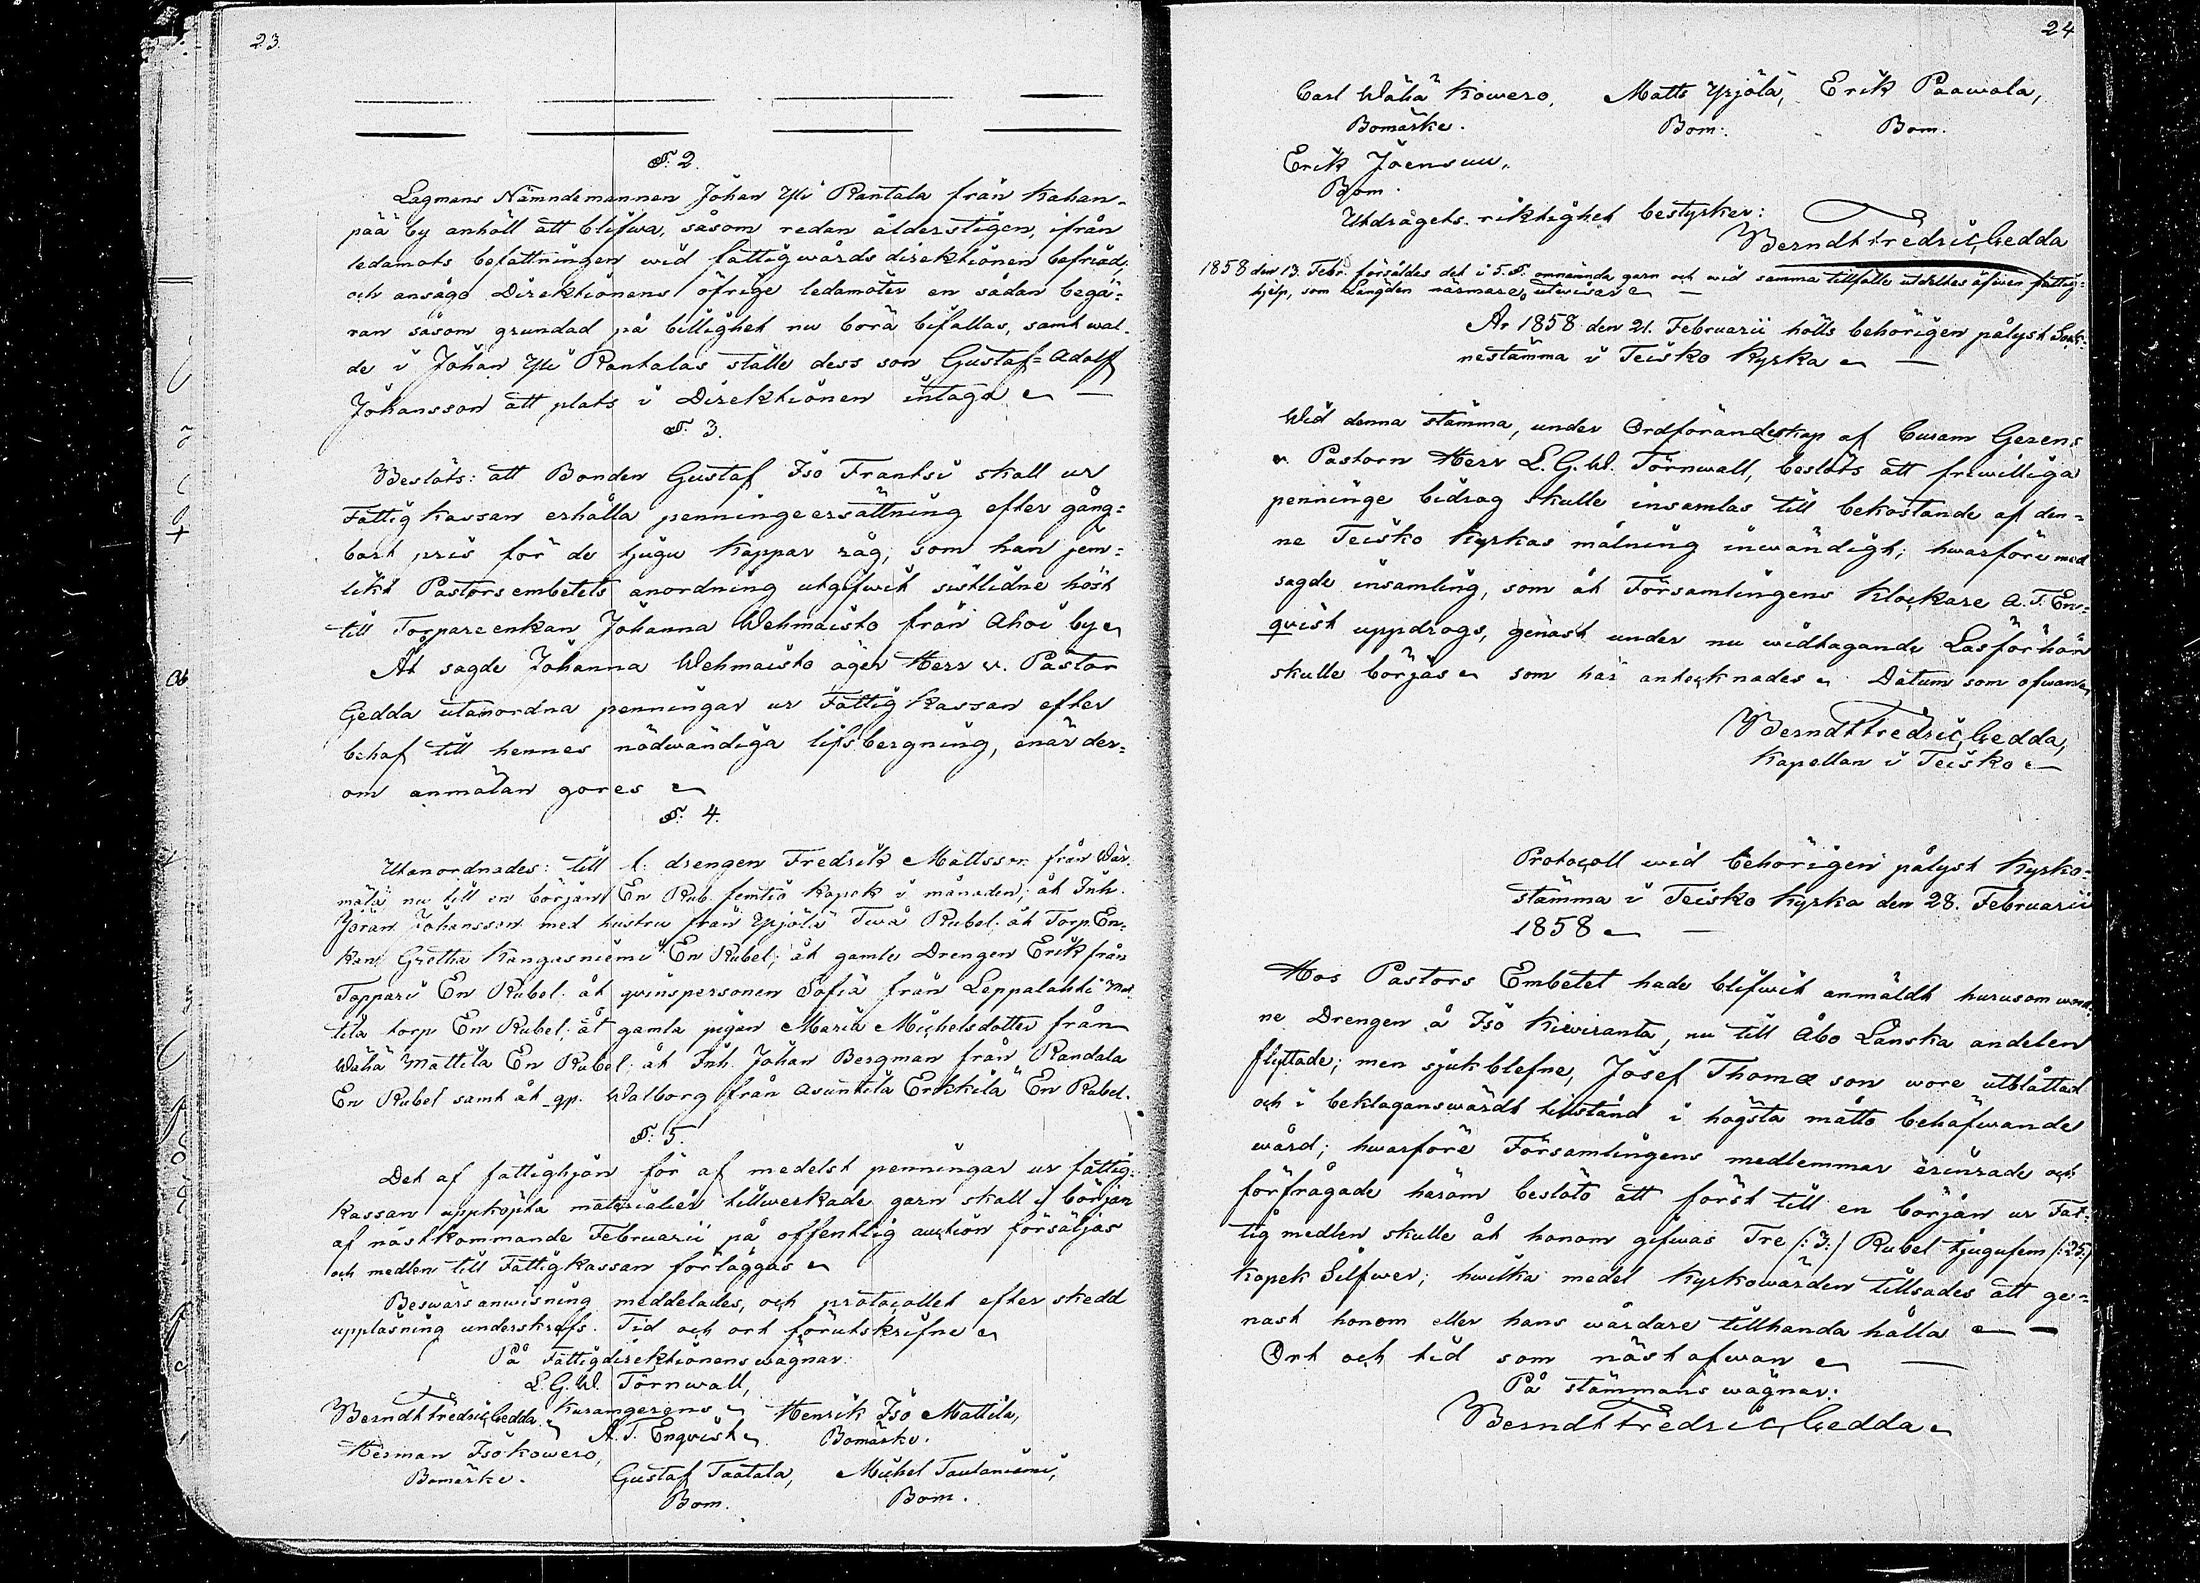 23.
§. 2.
Lagmans Nämndemannen Johan Yli Rantala från Kahan-
pää by anhöll att blifwa, såsom redan ålderstigen, ifrån
ledamots befattningen wid fattigwårds direktionen befriad,
och ansågo Direktionens öfrige ledamöter en sådan begä-
ran såsom grundad på billighet nu böra bifallas, samt wal-
de i Johan Yli Rantalas ställe dess son Gustaf-Adolf
Johansson att plats i Direktionen intaga
§. 3.
Beslöts: att Bonden Gustaf Iso Frantsi skall ur
Fattigkassan erhålla penningeersättning efter gång-
bart pris för de tjugu kappar råg, som han jem-
likt Pastorsembetets anordning utgifwit sistlidne höst
till Torpareenkan Johanna Wehmaisto från Ahoi by
Åt sagde Johanna Wehmaisto äger Herr v. Pastor
Gedda utanordna penningar ur Fattigkassan efter
behof till hennes nödwändiga lifsbergning, enär der-
om anmälan göres
§. 4.
Utanordnades: till f. drengen Fredrik Mattsson från Wär-
mälä nu till en början En Rub. femtio kopek i månaden; åt Inh.
Jöran Johansson med hustru från Ypjölä Twå Rubel. åt Torp. En-
kan Gretha Kangasniemi En Rubel; åt gamle Drengen Erik från
Toppari En Rubel. åt qvinspersonen Sofia från Leppälahti Mat-
tila torp En Rubel; åt gamla pigan Maria Michelsdotter från
Wähä Mattila En Rubel. åt Inh. Johan Bergman från Randala
En Rubel samt åt qp. Walborg från Asuntila Erkkilä En Rubel.
§. 5.
Det af fattighjon för af medelst penningar ur fattig-
kassan uppköpta materialier tillwerkade garn skall i början
af nästkommande Februarii på offentlig auktion försäljas
och medlen till Fattigkassan förläggas
Beswärsanwisning meddelades, och protocollet efter skedd
uppläsning underskrefs. Tid och ort förutskrifne
På Fattigdirektionens wägnar:
L. G. W. Törnwall,
Kuramgerens
Berndt Fredric Gedda A. F. Enqvist Henrik Iso Mattila,
Bomärke.
Herman Isokowero, Gustaf Taatala, Michel Taulaniemi,
Bomärke. Bom. Bom.
24
Carl Wähä Kowero, Matts Yrjölä, Erik Paawola,
Bomärke. Bom. Bom.
Erik Joensuu,
Bom.
Utdragets riktighet bestyrker:
Berndt Fredric Gedda
1858 den 13. Febr. försåldes det i 5. §. omnämnda garn och wid samma tillfälle utdeltes äfwen fattig-
hjelp, som Längden närmare utwisar
År 1858 den 21. Februarii hölls behörigen pålyst Sock-
nestämma i Teisko Kyrka
Wid denna stämma, under Ordförandeskap af Curam Gerens
v Pastorn Herr L. G. W. Törnwall, beslöts att friwilliga
penninge bidrag skulle insamlas till bekostande af den-
ne Teisko Kyrkas målning inwändigt; hwarföre med
sagde insamling, som åt Församlingens Klockare A. F. En-
qvist uppdrogs, genast under nu widtagande Läsförhör
skulle börjas som här antecknades Datum som ofwan
Berndt Fredric Gedda,
Kapellan i Teisko
Protocoll wid behörigen pålyst Kyrko-
stämma i Teisko Kyrka den 28. Februarii
1858
Hos Pastors Embetet hade blifwit anmäldt hurusom
ne Drengen å Iso Kiviranta, nu till Åbo Länska andelen
flyttade; men sjukblefne, Josef Thomæ son wore utblottad
och i beklaganswärdt tillstånd i högsta måtto behöfwande
wård; hwarföre Församlingens medlemmar erinrade och
förfrågade härom beslöto att först till en början ur Fat-
tig medlen skulle åt honom gifwas Tre /:3:/ Rubel tjugufem /:25:/
kopek Silfwer; hwilka medel Kyrkowärden tillsades att ge-
nast honom eller hans wårdare tillhanda hålla
Ort och tid som näst ofwan
På stämmans wägnar:
Berndt Fredric Gedda